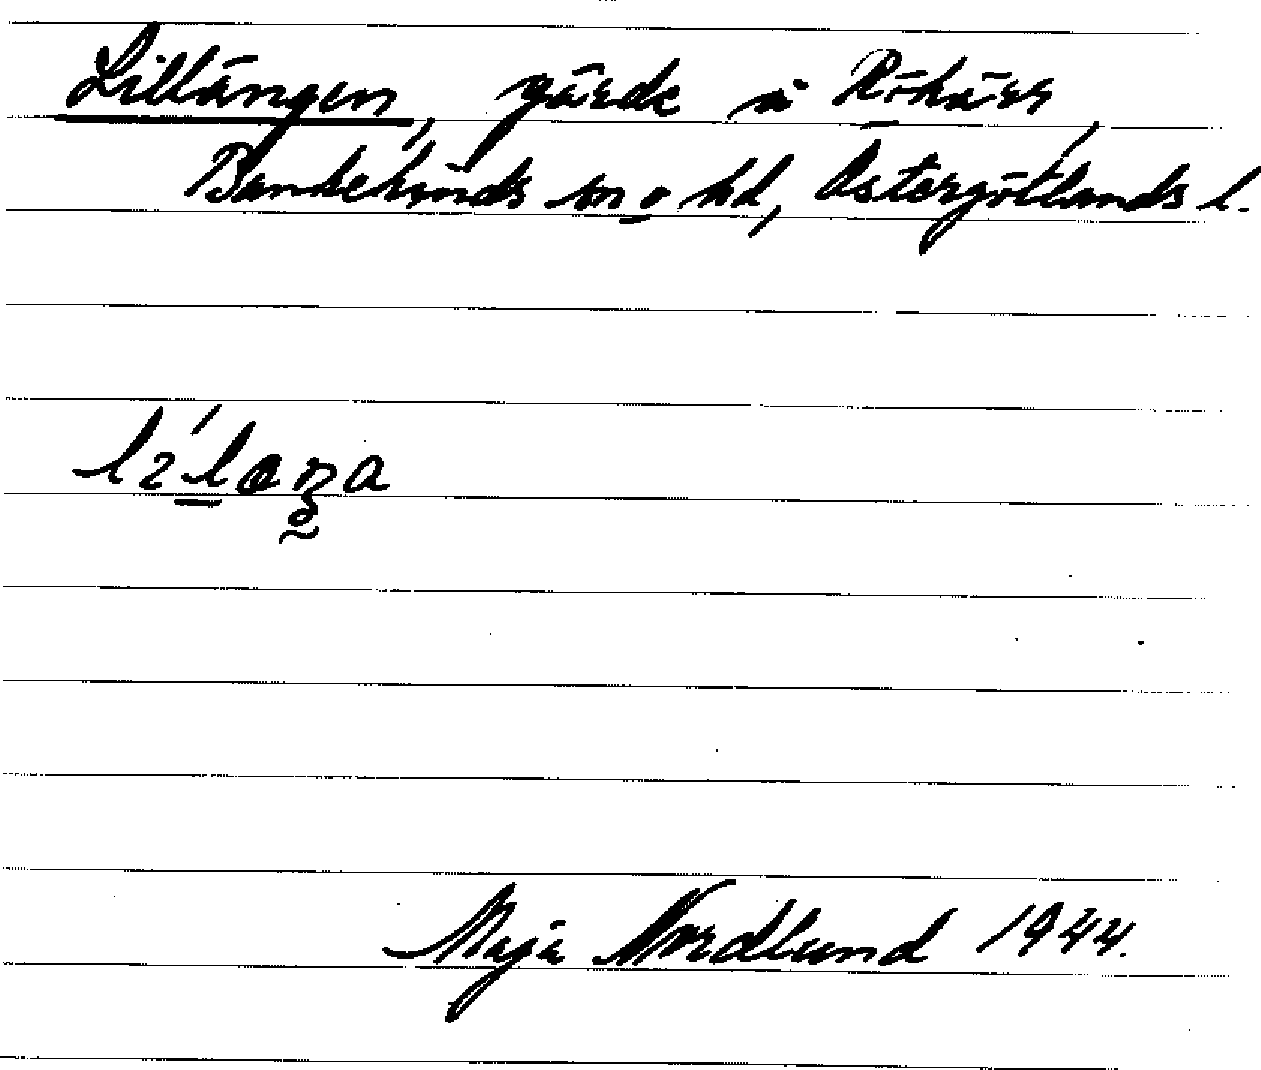 Lillängen, gärde å Rökärr,
Bankekinds sn o hd, Östergötlands l.
Maja Nordlund 1944.